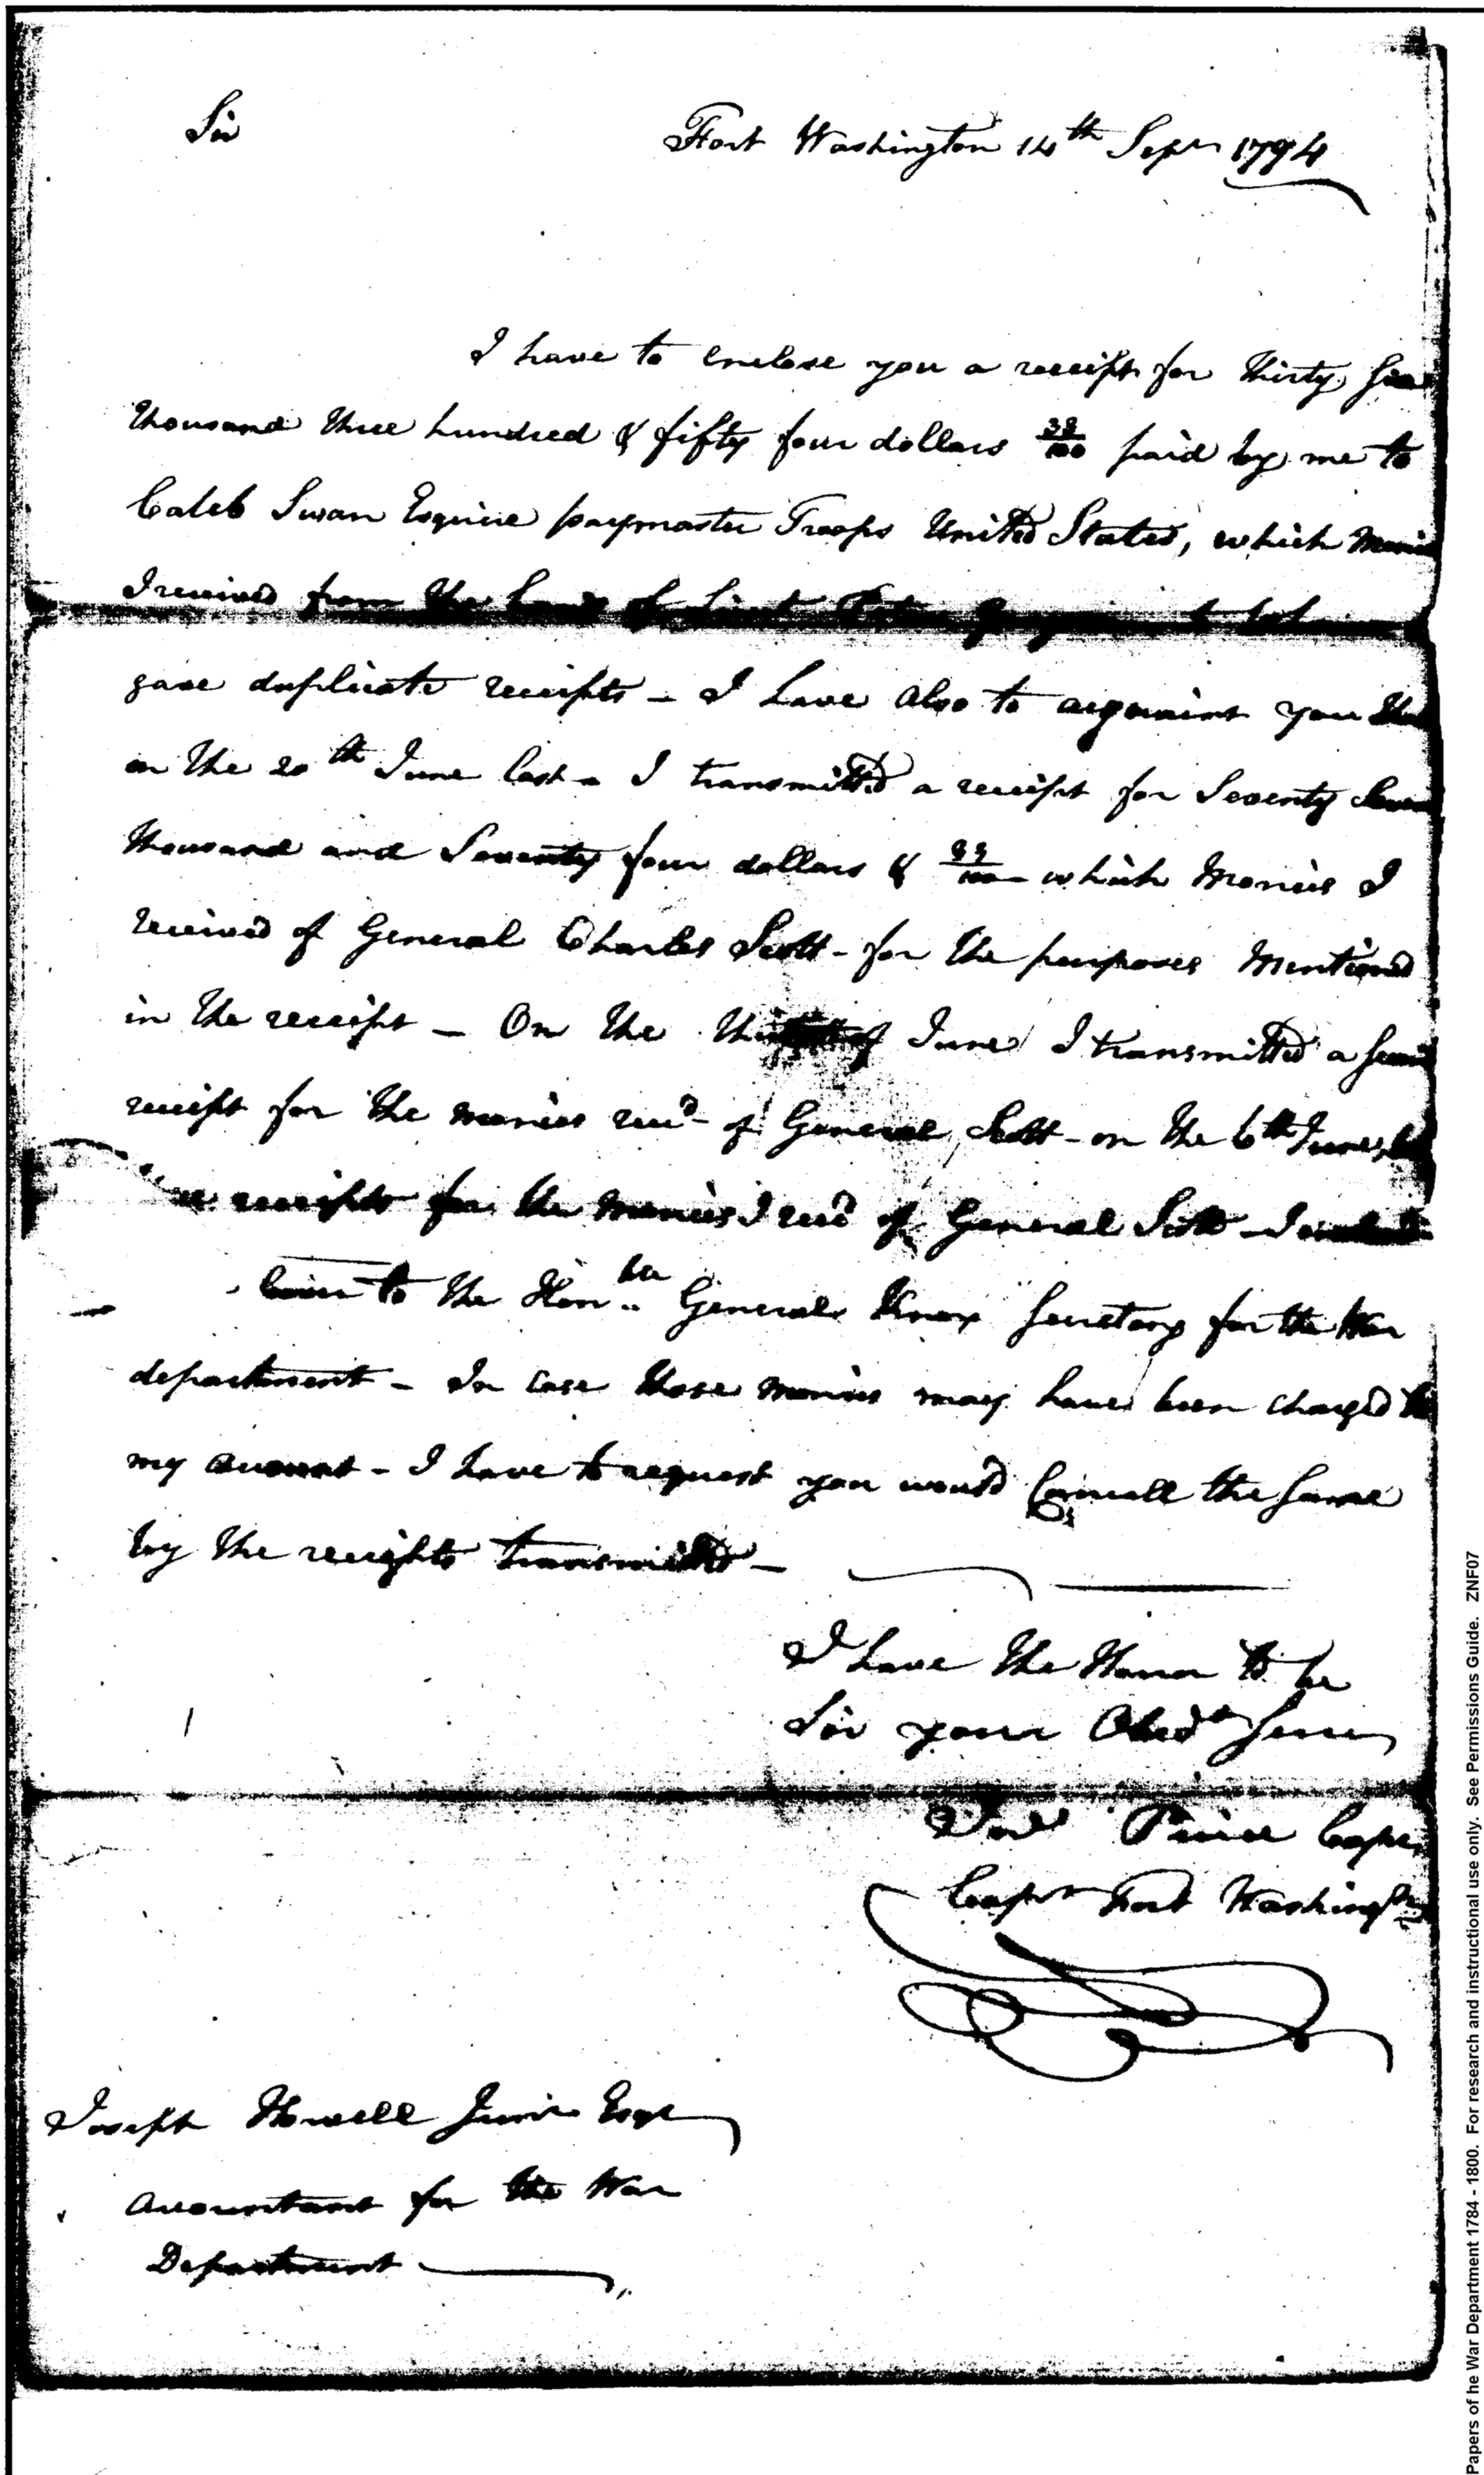 Sir
Fort Washington 14th Sepr 1794
I have to enclose you a receipt for thirty
thousand three hundred & fifty four dollars 38/100 paid by me to
Caleb Swan Esquire paymaster Troops United States, which Monies
I received from the hands of Lieut
gave duplicate receipts - I have also to acquaint you that
on the 20th June last - I transmitted a receipt for Seventy Seven
thousand and Seventy four dollars & /100 which Monies I
received of General Charles Scott - for the purposes Mentioned
in the receipt - On the of June I transmitted a
receipt for the monies recd of General Scott - on the 6th June,
receipts for the monies I recd of General Scott - I
to the Honble General Knox Secretary for the War
department - In case those monies may have been charged to
my account - I have to request you would Cancell the same
by the receipts transmitted -
I have the Honor to be
Sir your Obedt Serv
Pierce Capt
Fort Washington
Joseph Howell Junir Esqr
Accountant for the War
Department
Papers of he War Department 1784 - 1800. For research and instructional use only. See Permissions Guide. ZNF07